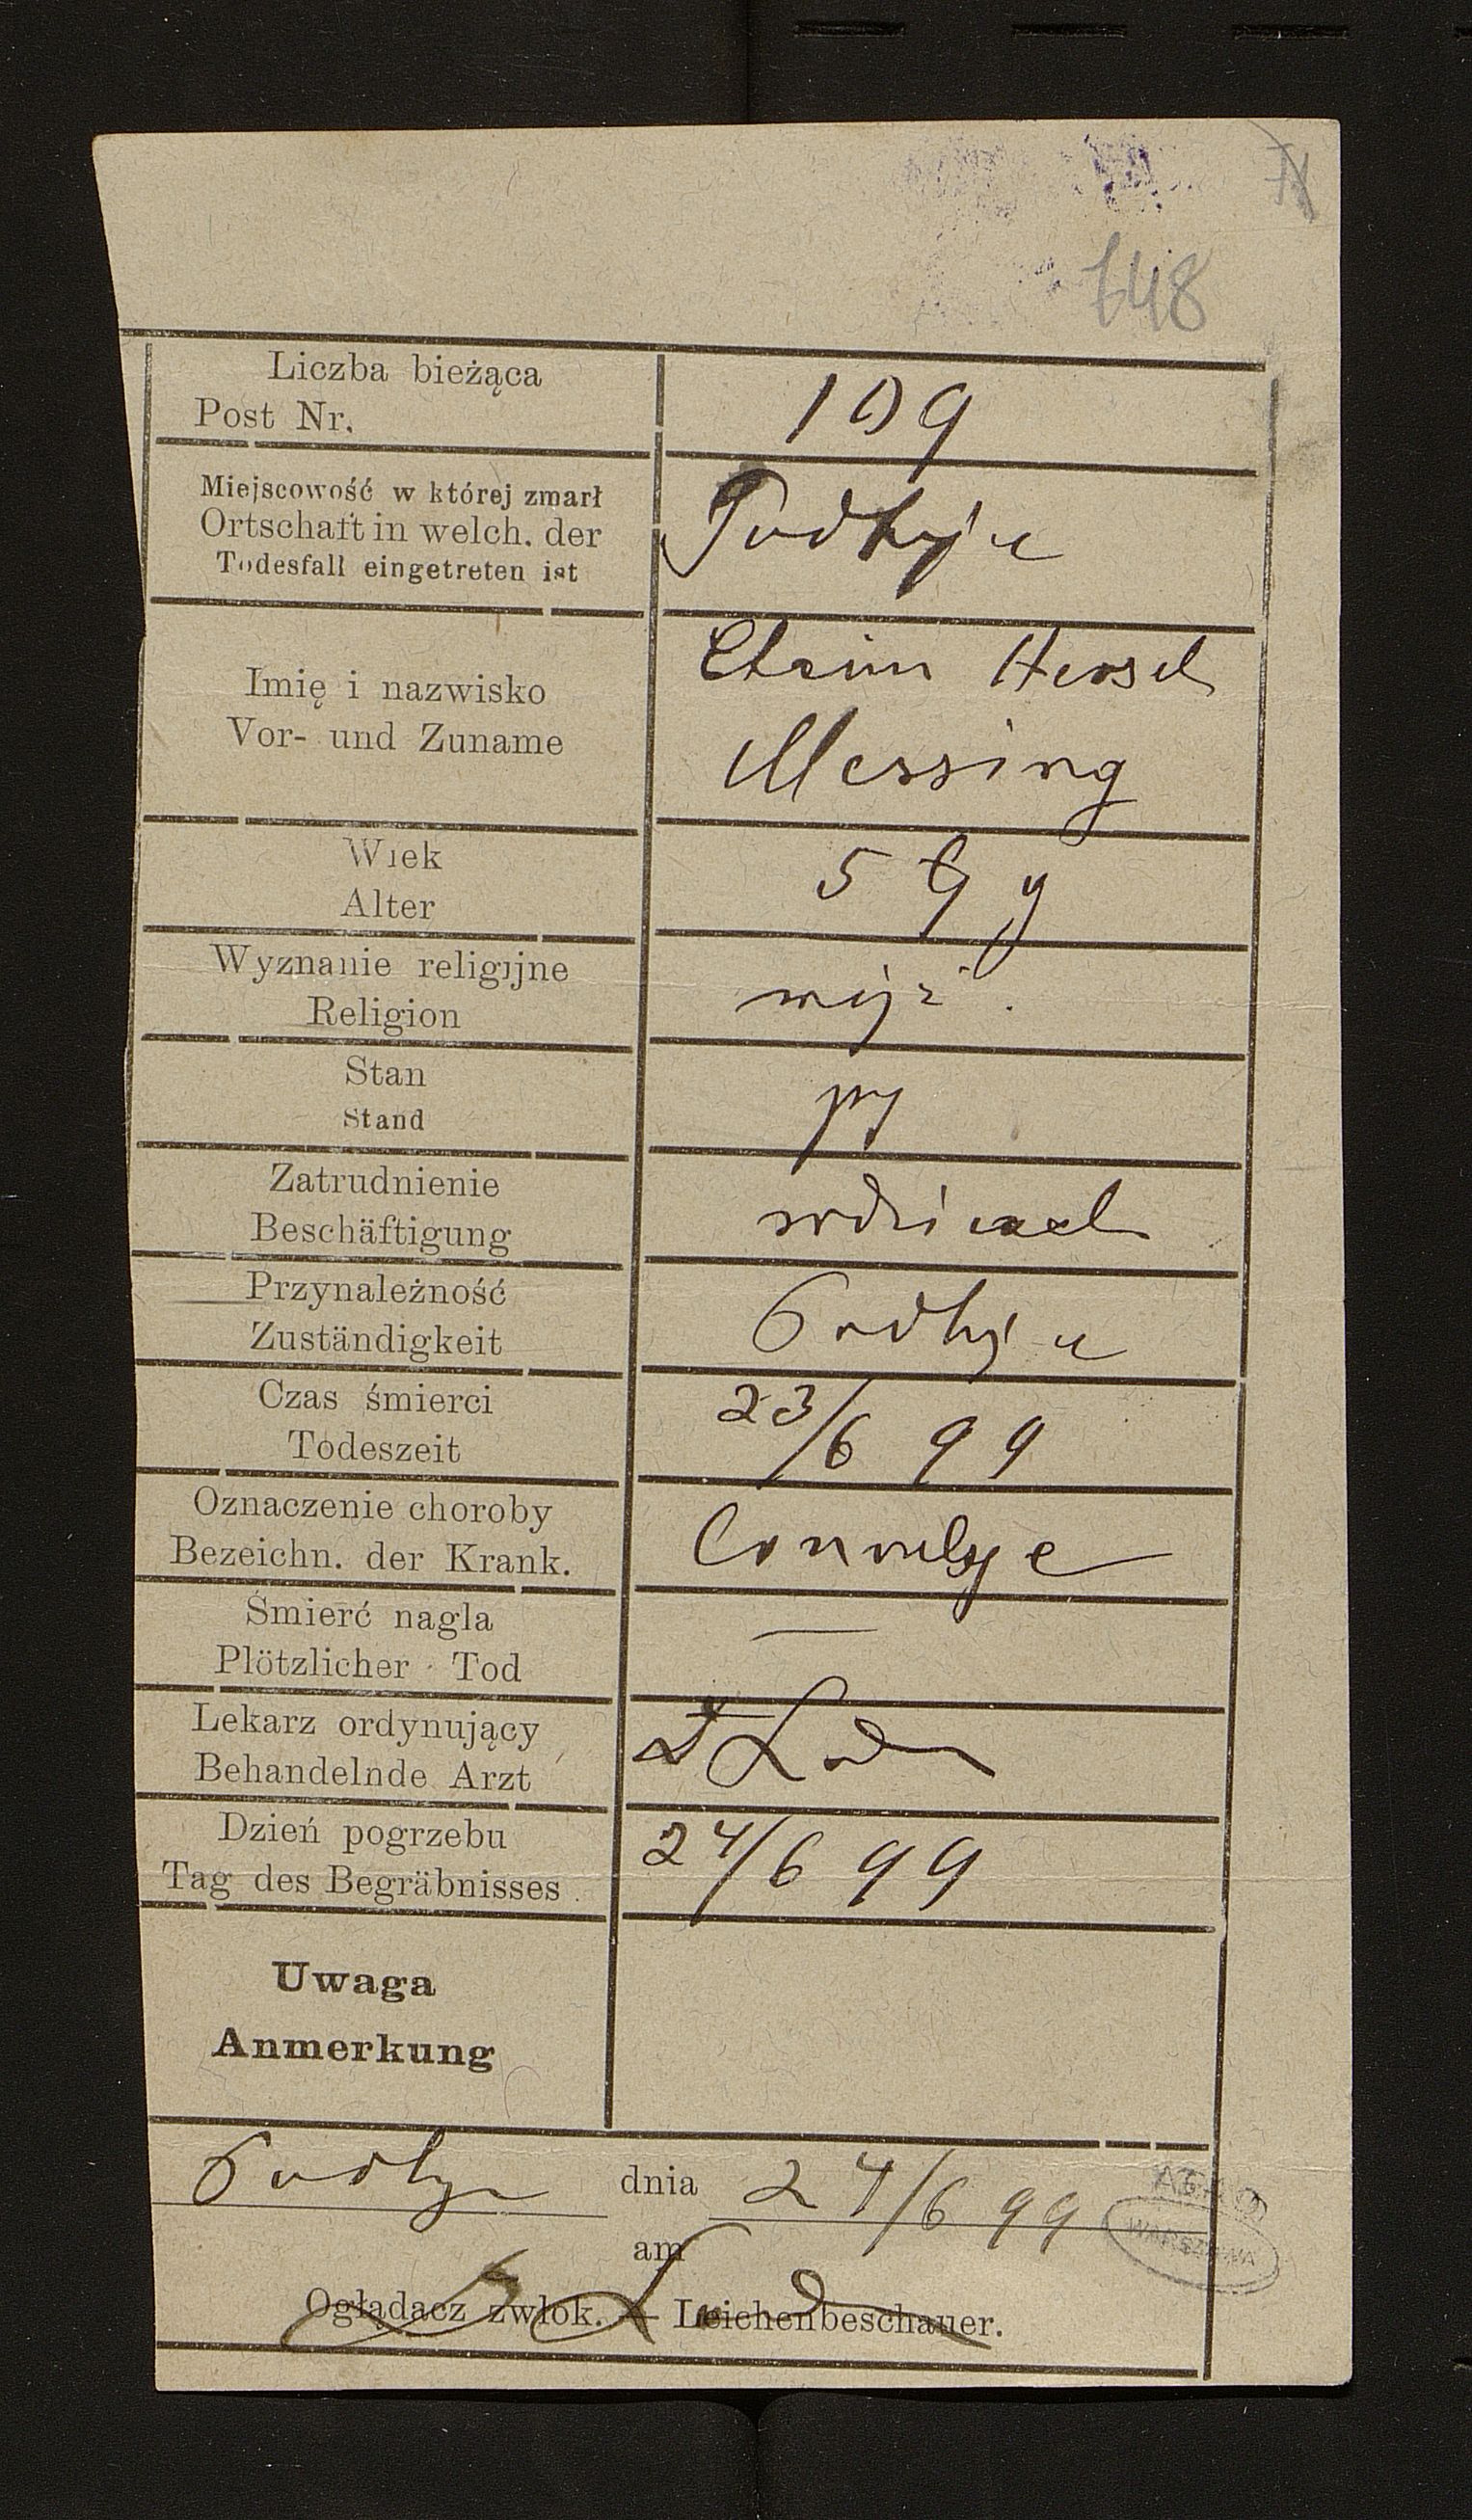 648
Liczba bieżąca
Post Nr.
109
Miejscowość w której zmarł
Ortschaft in welch. der
Todesfall eingetreten ist
Imię i nazwisko
Vor- und Zuname
Chaim Hersch
Messing
Wiek
Alter
5
Wyznanie religijne
Religion
mojż.
Stan
Stand
Zatrudnienie
Beschäftigung
Przynależność
Zuständigkeit
Czas śmierci
Todeszeit
23/6 99
Oznaczenie choroby
Bezeichn. der Krank.
Convulsye
Śmierć nagla
Plötzlicher Tod
—
Lekarz ordynujący
Behandelnde Arzt
Dzień pogrzebu
Tag des Begräbnisses
24/6 99
Uwaga
Anmerkung
dnia 24/6 99
am
Oglądacz zwłok. — Leichenbeschauer.
AGAD
WARSZAWA